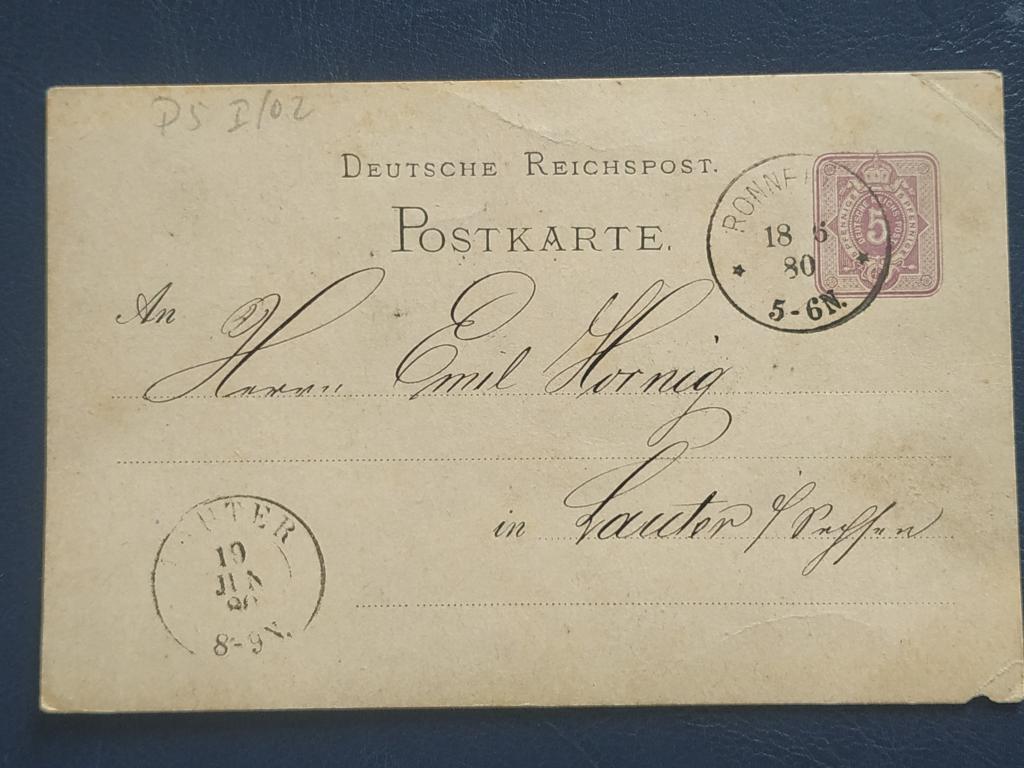 P5 I/02
DEUTSCHE REICHSPOST.
POSTKARTE.
RONNE
18 6
80
5-6N.
PFENNIGE 5 PFENNIGE
DEUTSCHE REICHS-POST
An
Herrn Emil Hornig
in Lauter /Sachsen
LAUTER
19
JUN
80
8-9N.